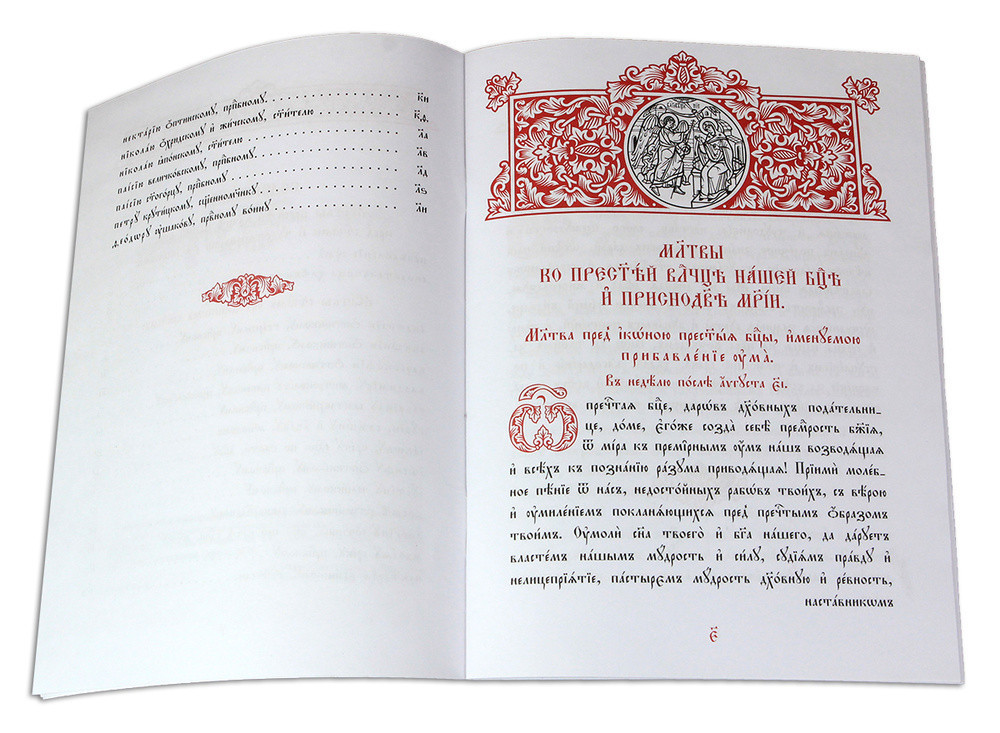 нектарїю ѻ҆птинскому, прп҇бному. к҃и
нїколаю ѻ҆хридскому и҆ жичскому, ст҃ителю к҃ѳ
нїколаю ꙗ҆понскому, ст҃ителю л҃а
паїсїю величковскому, прп҇бному. л҃в
паїсїю ст҃огорцу, прп҇бному л҃д
петру крутицкому, сщ҃енномч҃нку л҃ѕ
ѳеодѡру ᲂу҆шакову, првⷣному воину л҃и
МЛ҃ТВЫ
КО ПРЕСТ҃ѢЙ ВЛⷣЧЦѢ НА́ШЕЙ БЦ҃Ѣ
И҆ ПРИСНОДВ҃Ѣ МР҃І́И.
Мл҃тва пред̾ і҆кѡ́ною прест҃ы́ѧ бц҃ы, и҆менꙋ́емою
прибавле́нїе ᲂу҆ма̀.
Въ недѣ́лю по́слѣ а҆́ѵгꙋста є҃і.
Ѽ пречⷭ҇таѧ бцⷣе, дарѡ́въ дх҃о́вныхъ пода́тельни-
це, до́ме, є҆го́же созда̀ себѣ̀ премⷣрость бж҃їѧ,
ѿ мі́ра къ преми́рнымъ ᲂу҆́мъ на́шъ возводѧ́щаѧ
и҆ всѣ́хъ къ позна́нїю ра́зꙋма приводѧ́щаѧ! Прїимѝ моле́б-
ное пѣ́нїе ѿ на́съ, недосто́йныхъ рабѡ́въ твои́хъ, съ вѣ́рою
и҆ ᲂу҆миле́нїемъ покланѧ́ющихсѧ пред̾ пречⷭ҇тымъ ѻ҆́бразомъ
твои́мъ. Оу҆молѝ сн҃а твоего̀ и҆ бг҃а на́шего, да дарꙋ́етъ
власте́мъ на́шымъ мꙋ́дрость и҆ си́лꙋ, сꙋдїѧ́мъ пра́вдꙋ и҆
нелицепрїѧ́тїе, па́стыремъ мꙋ́дрость дх҃о́внꙋю и҆ ре́вность,
наста́вникѡмъ
є҃